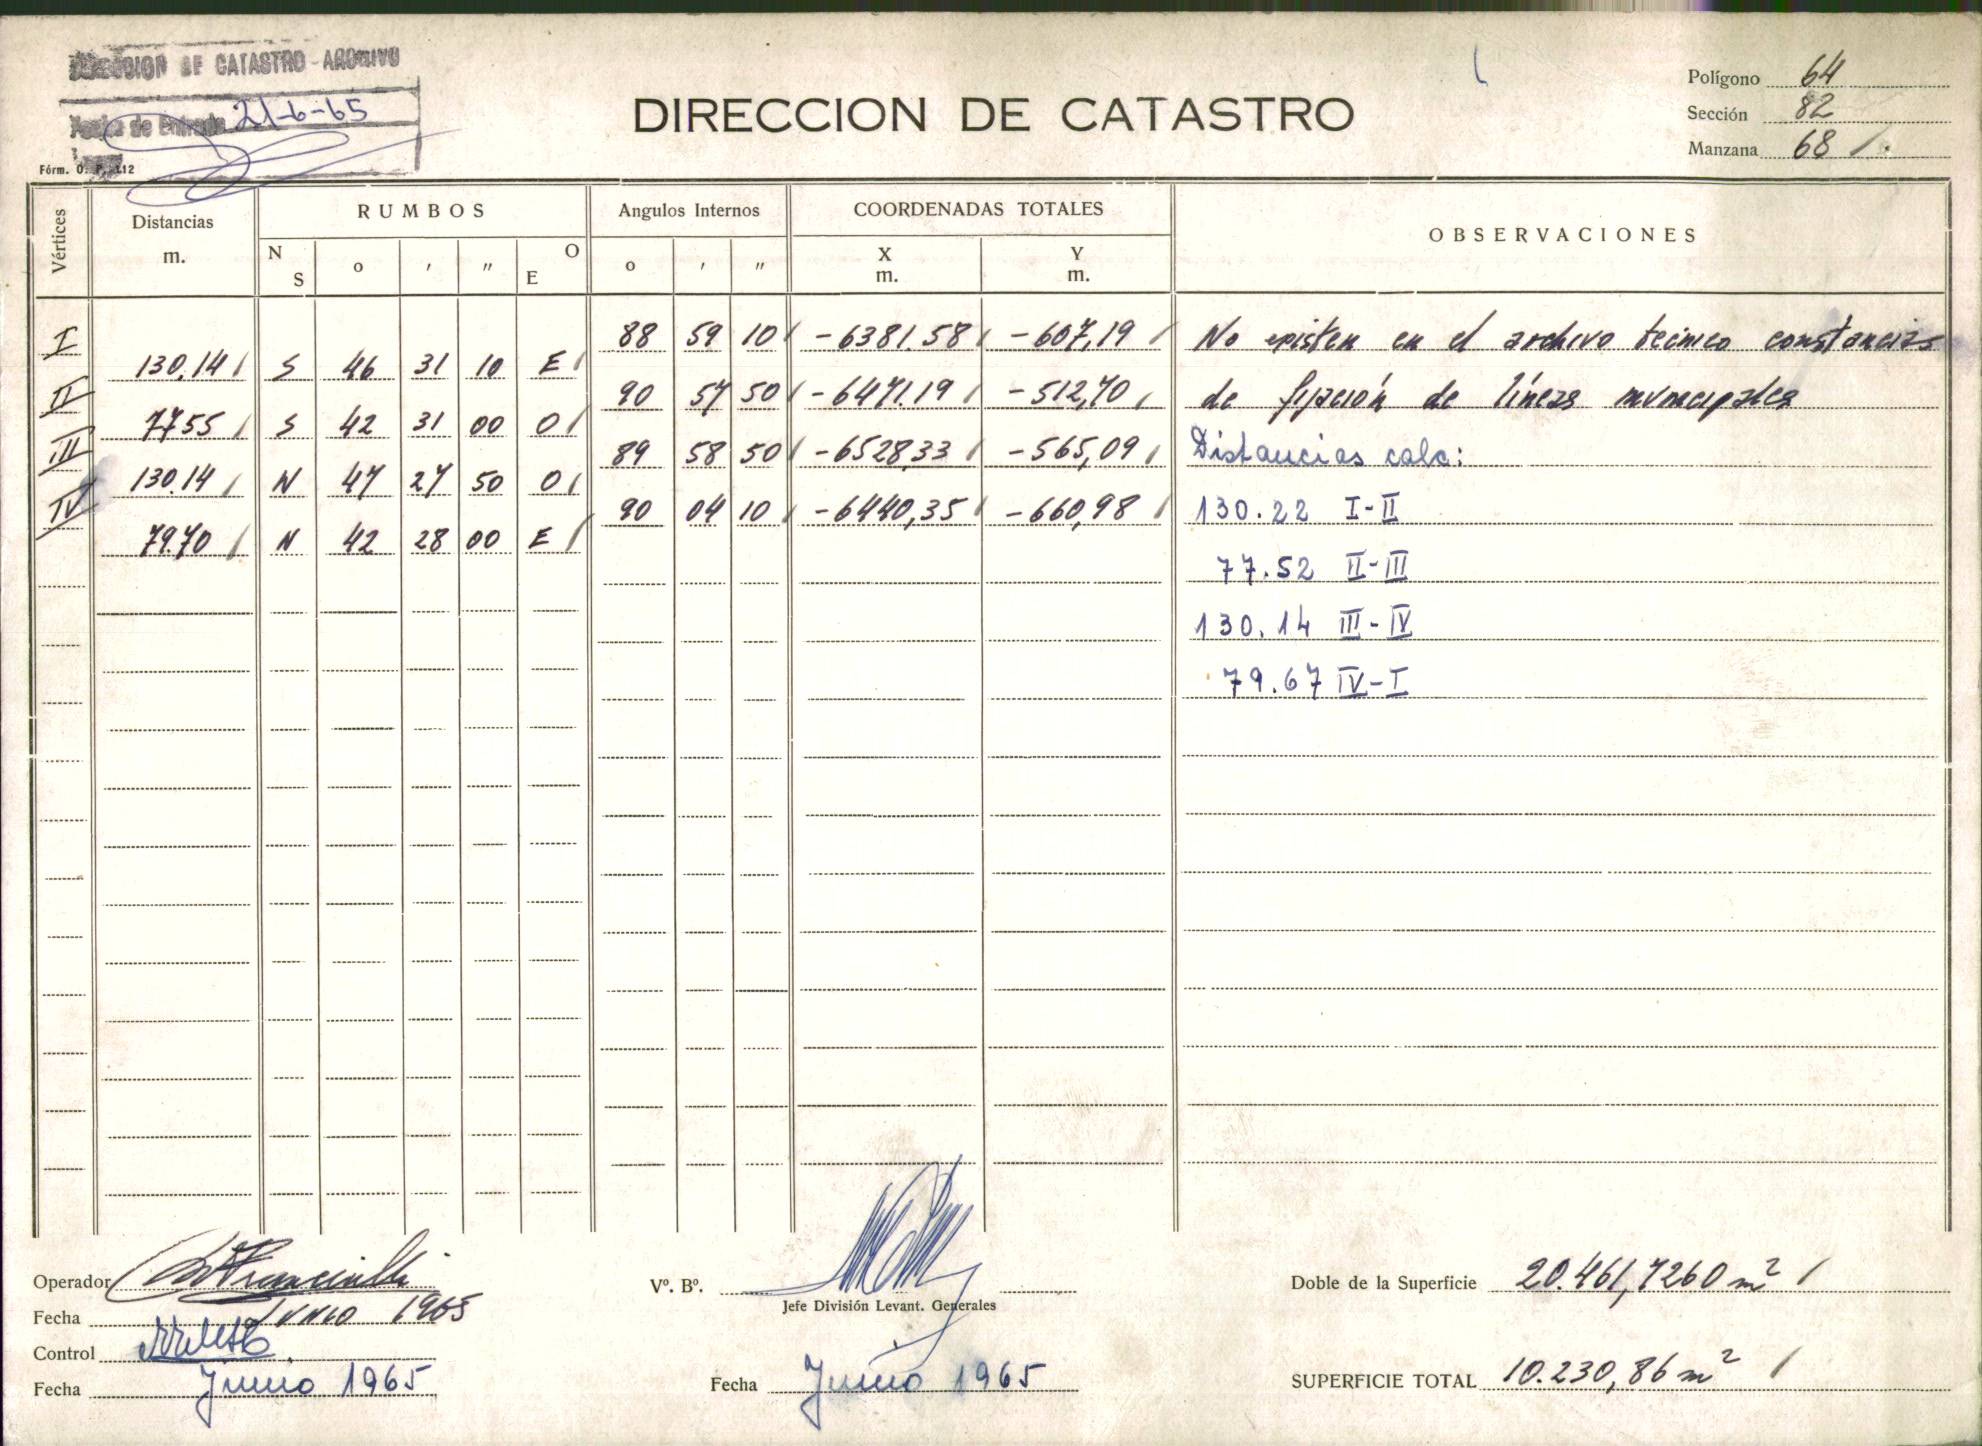 DIRECCION DE CATASTRO - ARCHIVO
Fecha de Entrada 21-6-65
Fórm. O. P. 112
DIRECCION DE CATASTRO
Polígono 64
Sección 82
Manzana 68
Vértices Distancias m. RUMBOS Angulos Internos COORDENADAS TOTALES OBSERVACIONES
N S o ' " E O o ' " X m. Y m.
I 88 59 10 -6381.58 -607,19 No existen en el archivo técnico constancias
130,14 S 46 31 10 E
II 90 57 50 -6471.19 -512,70 de fijación de líneas municipales
77.55 S 42 31 00 O
III 89 58 50 -6528,33 -565,09 Distancias calc:
130.14 N 47 27 50 O
IV 90 04 10 -6440,35 -660,98 130.22 I-II
79.70 N 42 28 00 E
77.52 II-III
130.14 III-IV
79.67 IV-I
Operador
Fecha Junio 1965
Control
Fecha Junio 1965
Vº. Bº.
Jefe División Levant. Generales
Fecha Junio 1965
Doble de la Superficie 20.461,7260 m²
SUPERFICIE TOTAL 10.230,86 m²